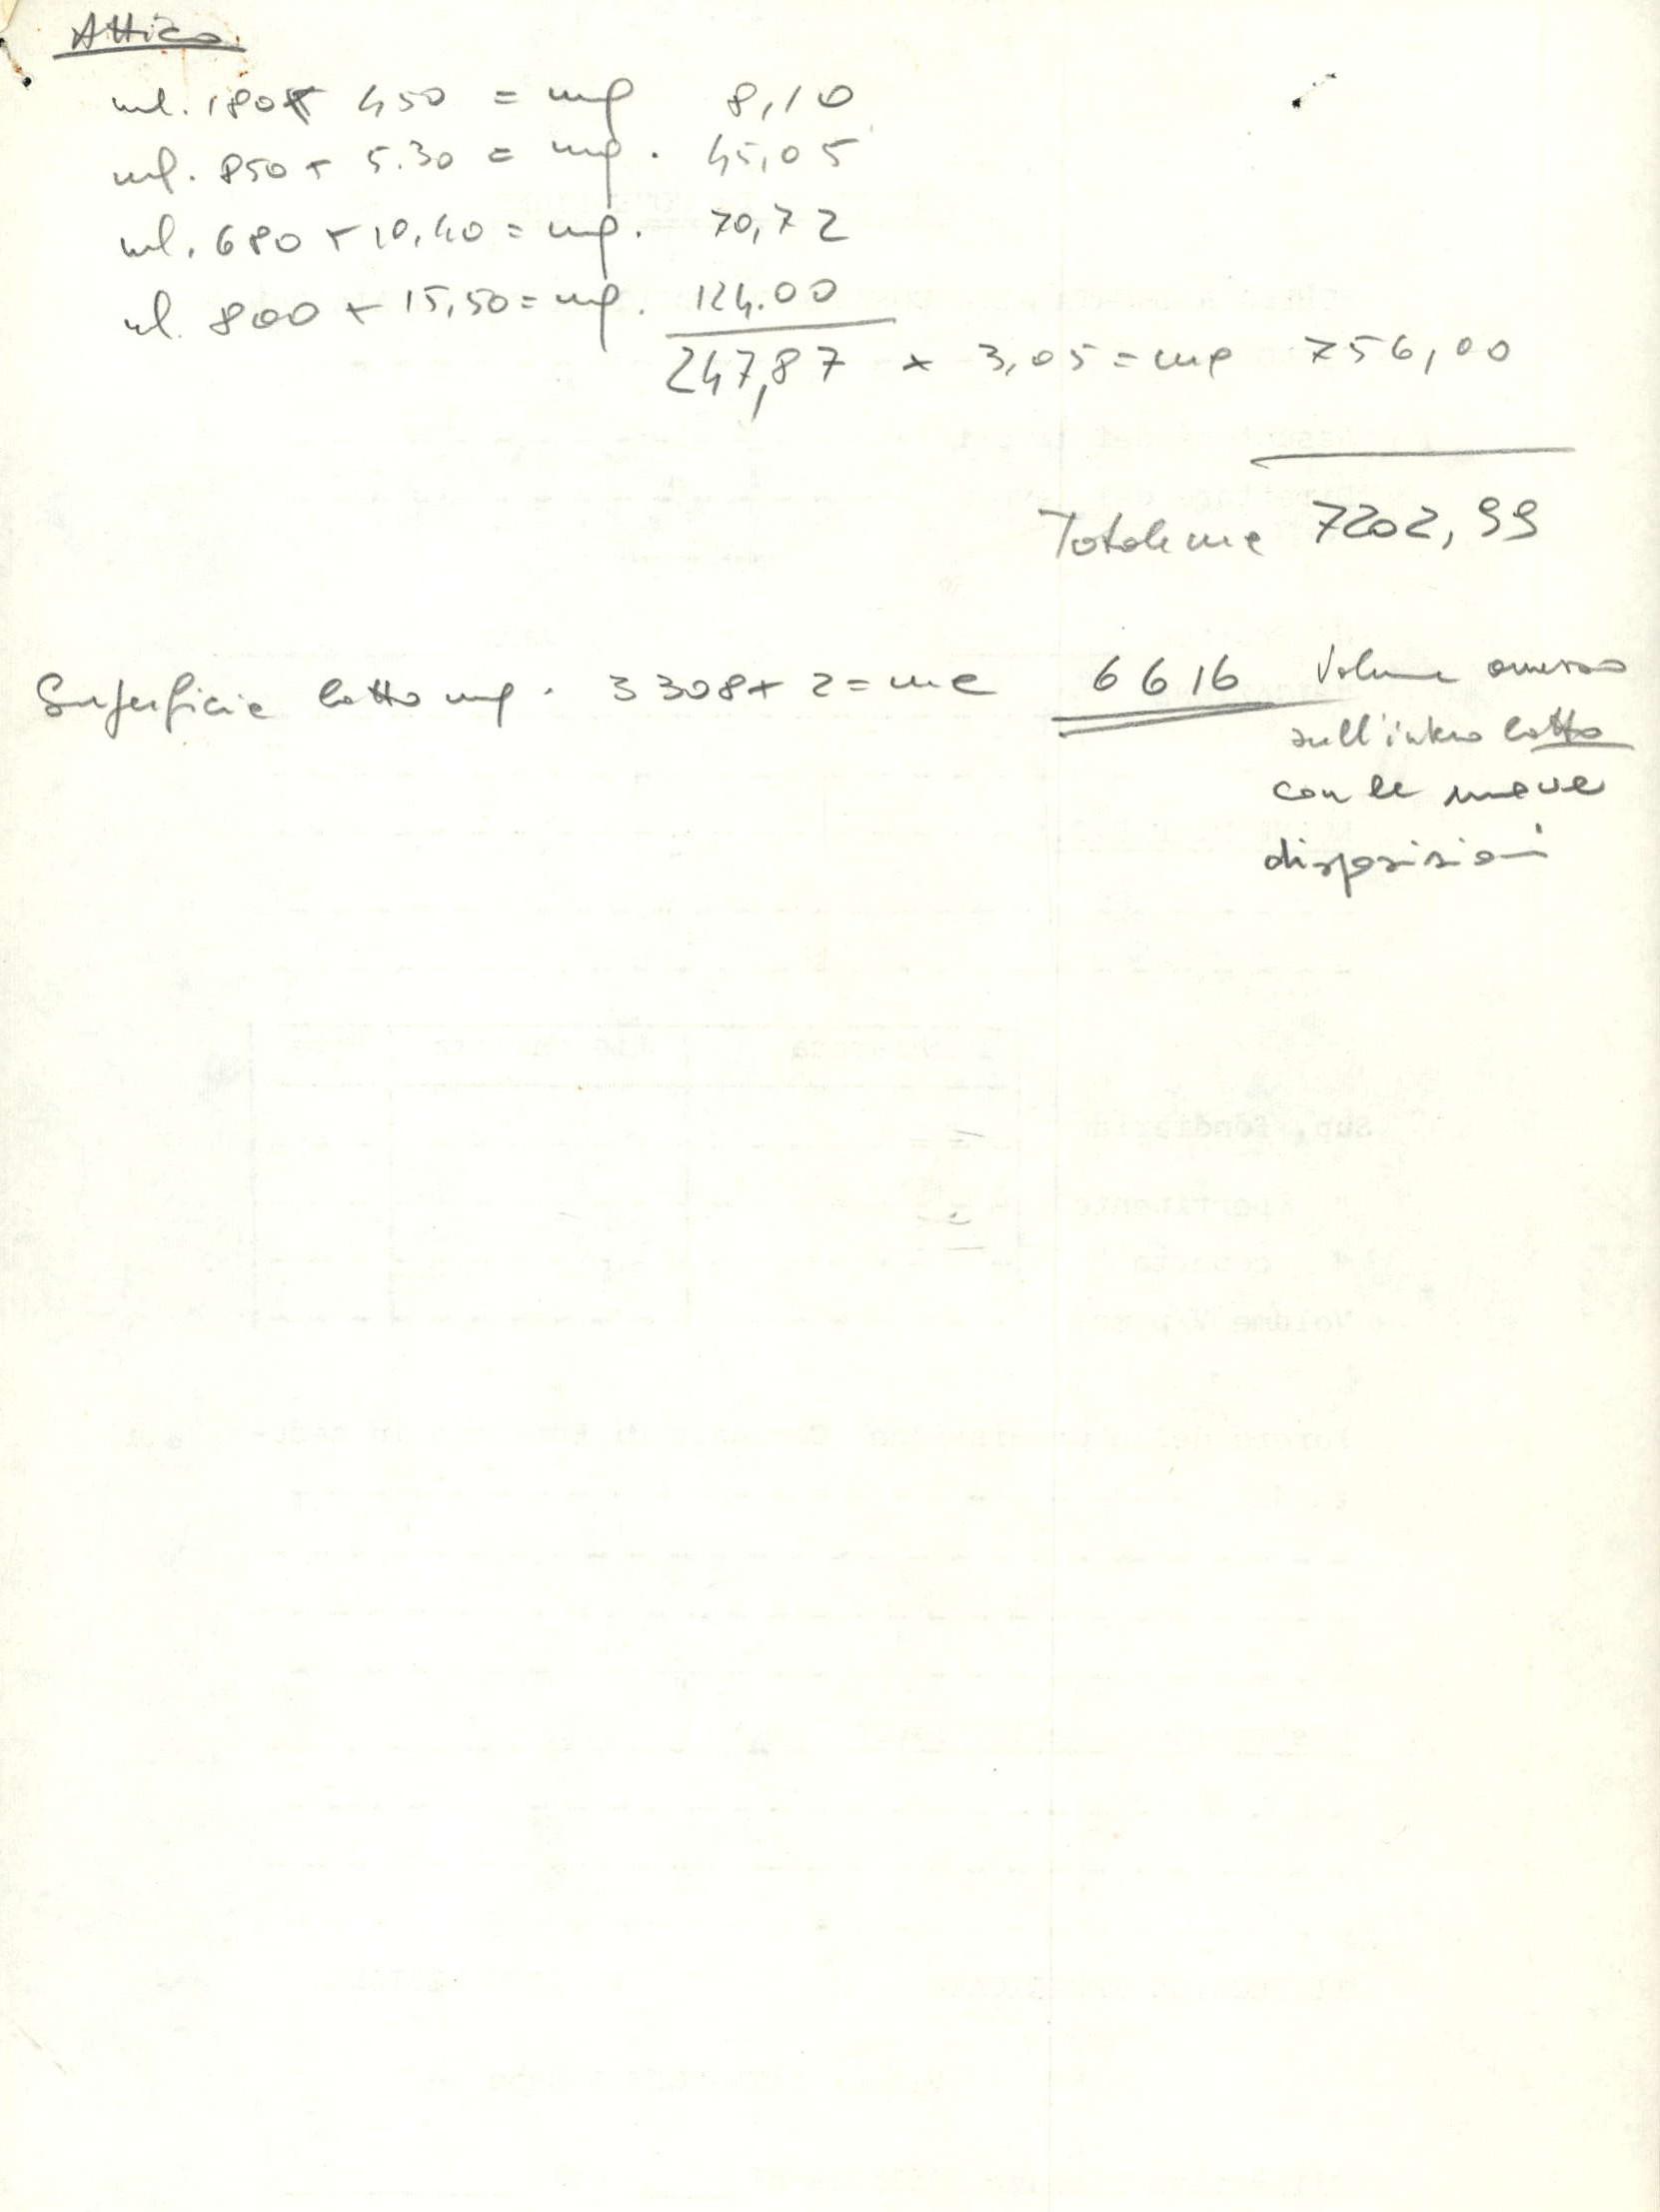 Attico
ml. 180 x 450 = mq 8,10
ml. 850 x 5.30 = mq. 45,05
ml. 680 x 10,40 = mq. 70,72
ml. 800 x 15,50 = mq. 124.00
247,87 x 3,05 = mc 756,00
Totale mc 7202,99
Superficie lotto mq. 3308 x 2 = mc 6616 Volume
sull'intero lotto
con le nuove
disposizioni